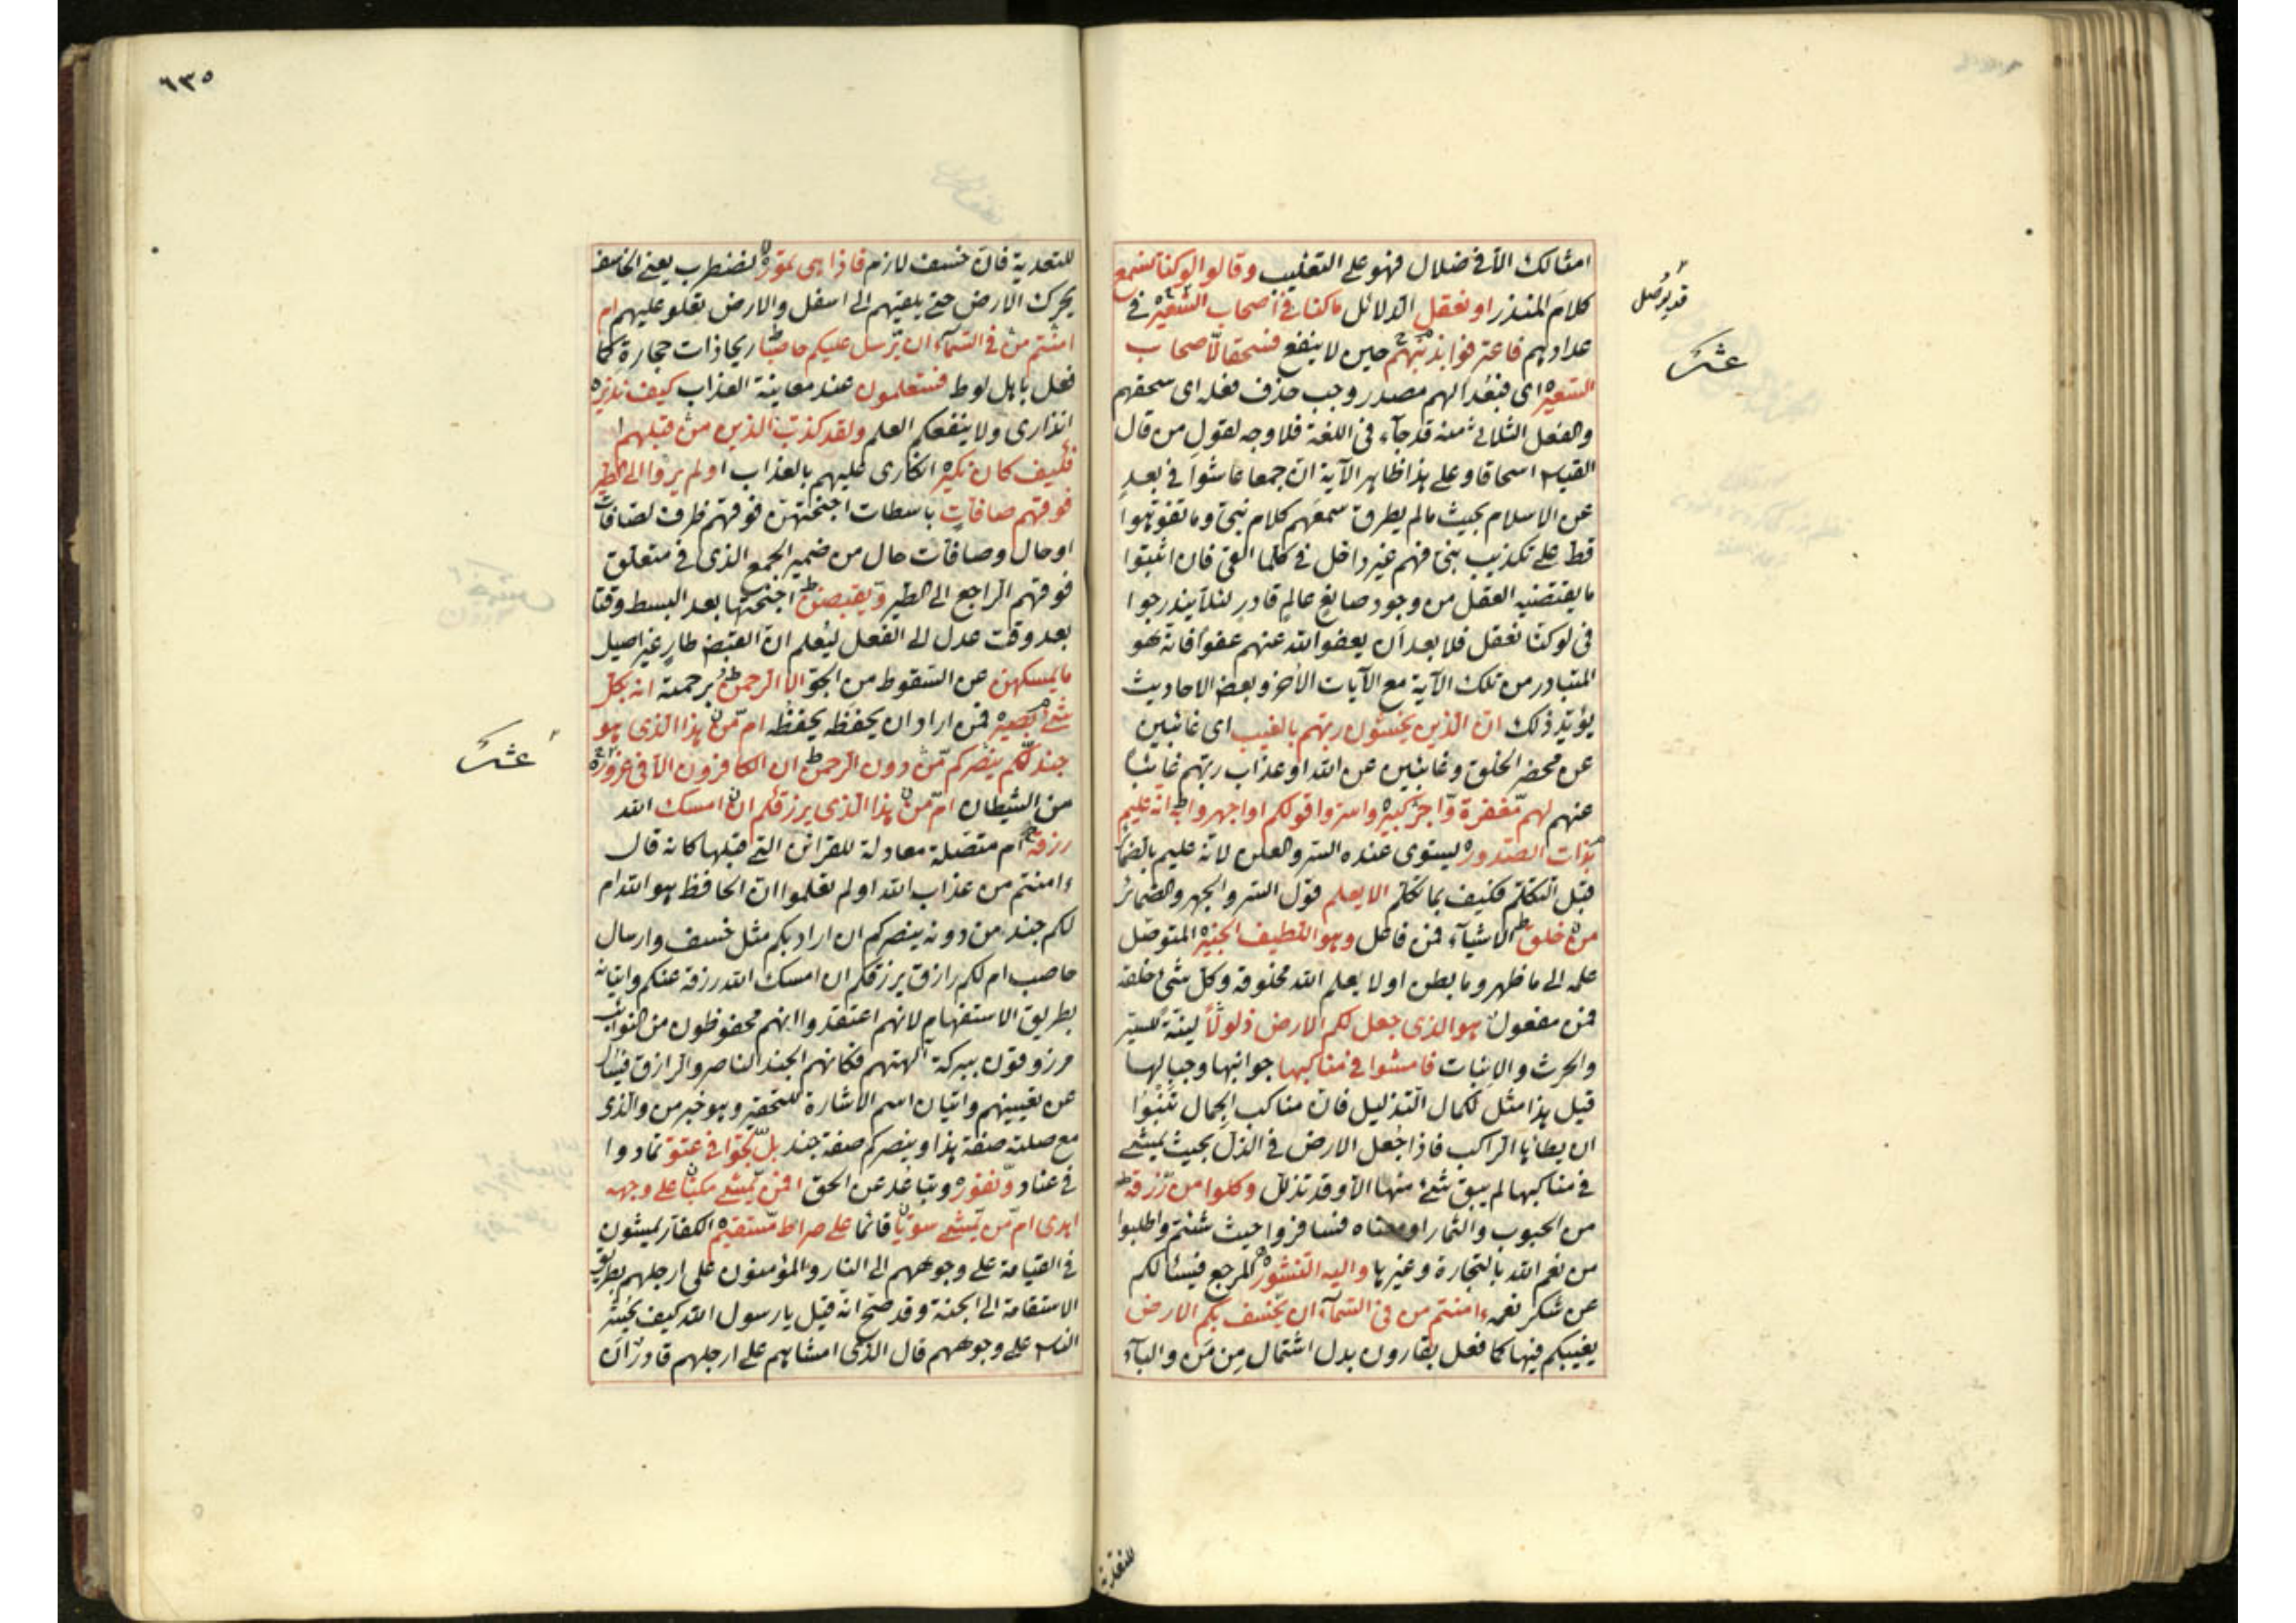 امثالك الا فى ضلال فهو على التغليب وقالوا لو كنا نسمع
كلام المنذر او نعقل الدلائل ما كنا فى اصحاب السعير فى
عدادهم فاعترفوا بذنبهم حين لا ينفع فسحقا لاصحاب
السعير اى فبعدا لهم مصدر وجب حذف فعله اى سحقهم
والفعل الثلاثى منه قد جاء فى اللغة فلا وجه لقول من قال
القياس اسحاقا وعلى هذا ظاهر الآية ان جمعا عاشوا فى بعد
عن الاسلام بحيث ما لم يطرق سمعهم كلام نبى وما تفوهوا
قط على تكذيب نبى فهم غير داخل فى كلما القى فان اثبتوا
ما يقتضيه العقل من وجود صانع عالم قادر لئلا يندرجوا
فى لو كنا نعقل فلا بعد ان يعفو الله عنهم عفوا فانه هو
المتبادر من تلك الآية مع الآيات الاخر وبعض الاحاديث
يؤيد ذلك ان الذين يخشون ربهم بالغيب اى غائبين
عن محضر الخلق وغائبين عن الله او عذاب ربهم غائبا
عنهم لهم مغفرة واجر كبير واسروا قولكم او اجهروا به انه عليم
بذات الصدور يستوى عنده السر والعلن لانه عليم بالضمائر
قبل التكلم فكيف بما تكلم الا يعلم قول السر والجهر والضمائر
من خلق الاشياء فمن فاعل وهو اللطيف الخبير المتوصل
علمه الى ما ظهر وما بطن او لا يعلم الله مخلوقه وكل شئ خلقه
فمن مفعول هو الذى جعل لكم الارض ذلولا لينة للسير
والحرث والانبات فامشوا فى مناكبها جوانبها وجبالها
قيل هذا مثل لكمال التذليل فان مناكب الجمال تنبوا
ان يطاها الراكب فاذا جعل الارض فى الذل بحيث يمشى
فى مناكبها لم يبق شئ منها الا وقد تذلل وكلوا من رزقه
من الحبوب والثمار او معناه فسافروا حيث شئتم واطلبوا
من نعم الله بالتجارة وغيرها واليه النشور المرجع فيسألكم
عن شكر نعمه ءامنتم من فى السماء ان يخسف بكم الارض
يغيبكم فيها كما فعل بقارون بدل اشتمال من من والباء
قد يوصل
عشر
للتعدية
٦٣٥
للتعدية فان خسف لازم فاذا هى تمور تضطرب يعنى الخاسف
يحرك الارض حتى يلقيهم الى اسفل والارض تعلو عليهم ام
امنتم من فى السماء ان يرسل عليكم حاصبا ريحا ذات حجارة كما
فعل باهل لوط فستعلمون عند معاينة العذاب كيف نذير
انذارى ولا ينفعكم العلم ولقد كذب الذين من قبلهم
فكيف كان نكير انكارى عليهم بالعذاب اولم يروا الى الطير
فوقهم صافات باسطات اجنحتهن فوقهم ظرف لصافات
او حال وصافات حال من ضمير الجمع الذى فى متعلق
فوقهم الراجع الى الطير ويقبضن اجنحتها بعد البسط وقتا
بعد وقت عدل الى الفعل ليعلم ان القبض طار غير اصيل
ما يمسكهن عن السقوط من الجو الا الرحمن برحمته انه بكل
شئ بصير فمن اراد ان يحفظه يحفظه ام من هذا الذى هو
جند لكم ينصركم من دون الرحمن ان الكافرون الا فى غرور
من الشيطان ام من هذا الذى يرزقكم ان امسك الله
رزقه ام متصلة معادلة للقرائن التى قبلها كانه قال
ءامنتم من عذاب الله اولم تعلموا ان الحافظ هو الله ام
لكم جند من دونه ينصركم ان اراد بكم مثل خسف وارسال
حاصب ام لكم رازق يرزقكم ان امسك الله رزقه عنكم واتيانه
بطريق الاستفهام لانهم اعتقدوا انهم محفوظون من النوائب
مرزوقون ببركة آلهتهم فكانهم الجند الناصر والرازق فيسأل
عن تعيينهم واتيان اسم الاشارة للتحقير وهو خبر من والذى
مع صلته صفة هذا وينصركم صفة جند بل لجوا فى عتو تمادوا
فى عناد ونفور وتباعد عن الحق افمن يمشى مكبا على وجهه
اهدى ام من يمشى سويا قائما على صراط مستقيم الكفار يمشون
فى القيامة على وجوههم الى النار والمؤمنون على ارجلهم بطريق
الاستقامة الى الجنة وقد صح انه قيل يا رسول الله كيف يحشر
الناس على وجوههم قال الذى امشاهم على ارجلهم قادر ان
عشر